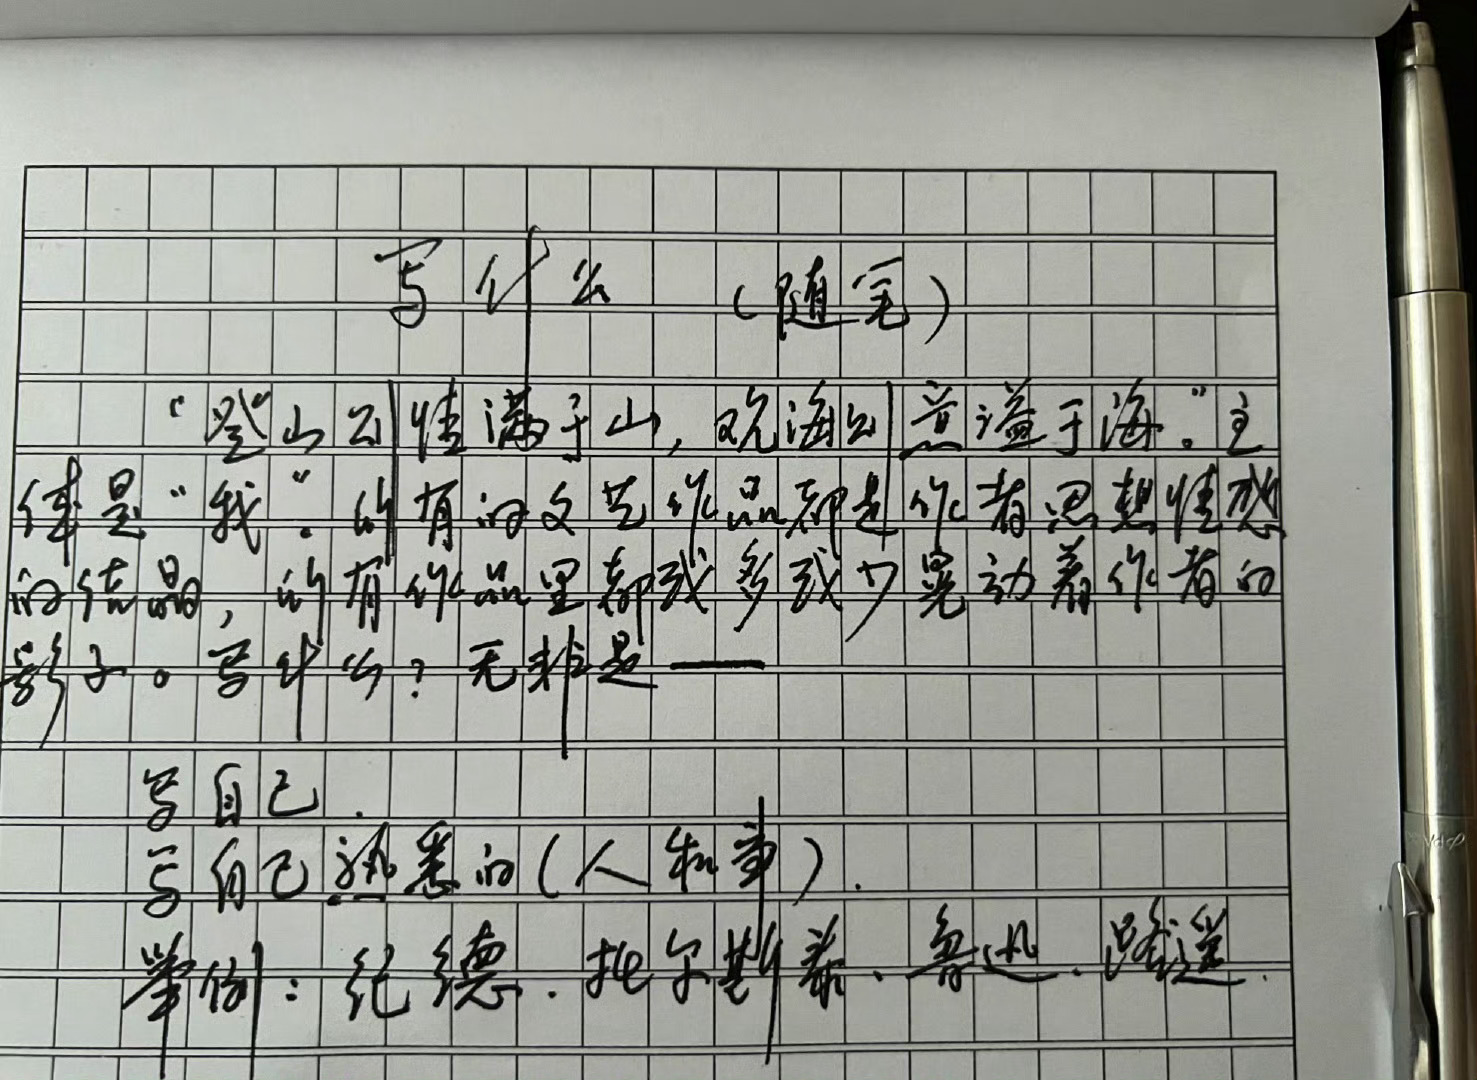 写什么（随笔）
“登山则情满于山，观海则意溢于海。”主
体是“我”。所有的文艺作品都是作者思想情感
的结晶，所有作品里都或多或少晃动着作者的
影子。写什么？无非是——
写自己．
写自己熟悉的（人和事）．
举例：纪德．托尔斯泰、鲁迅．路遥．